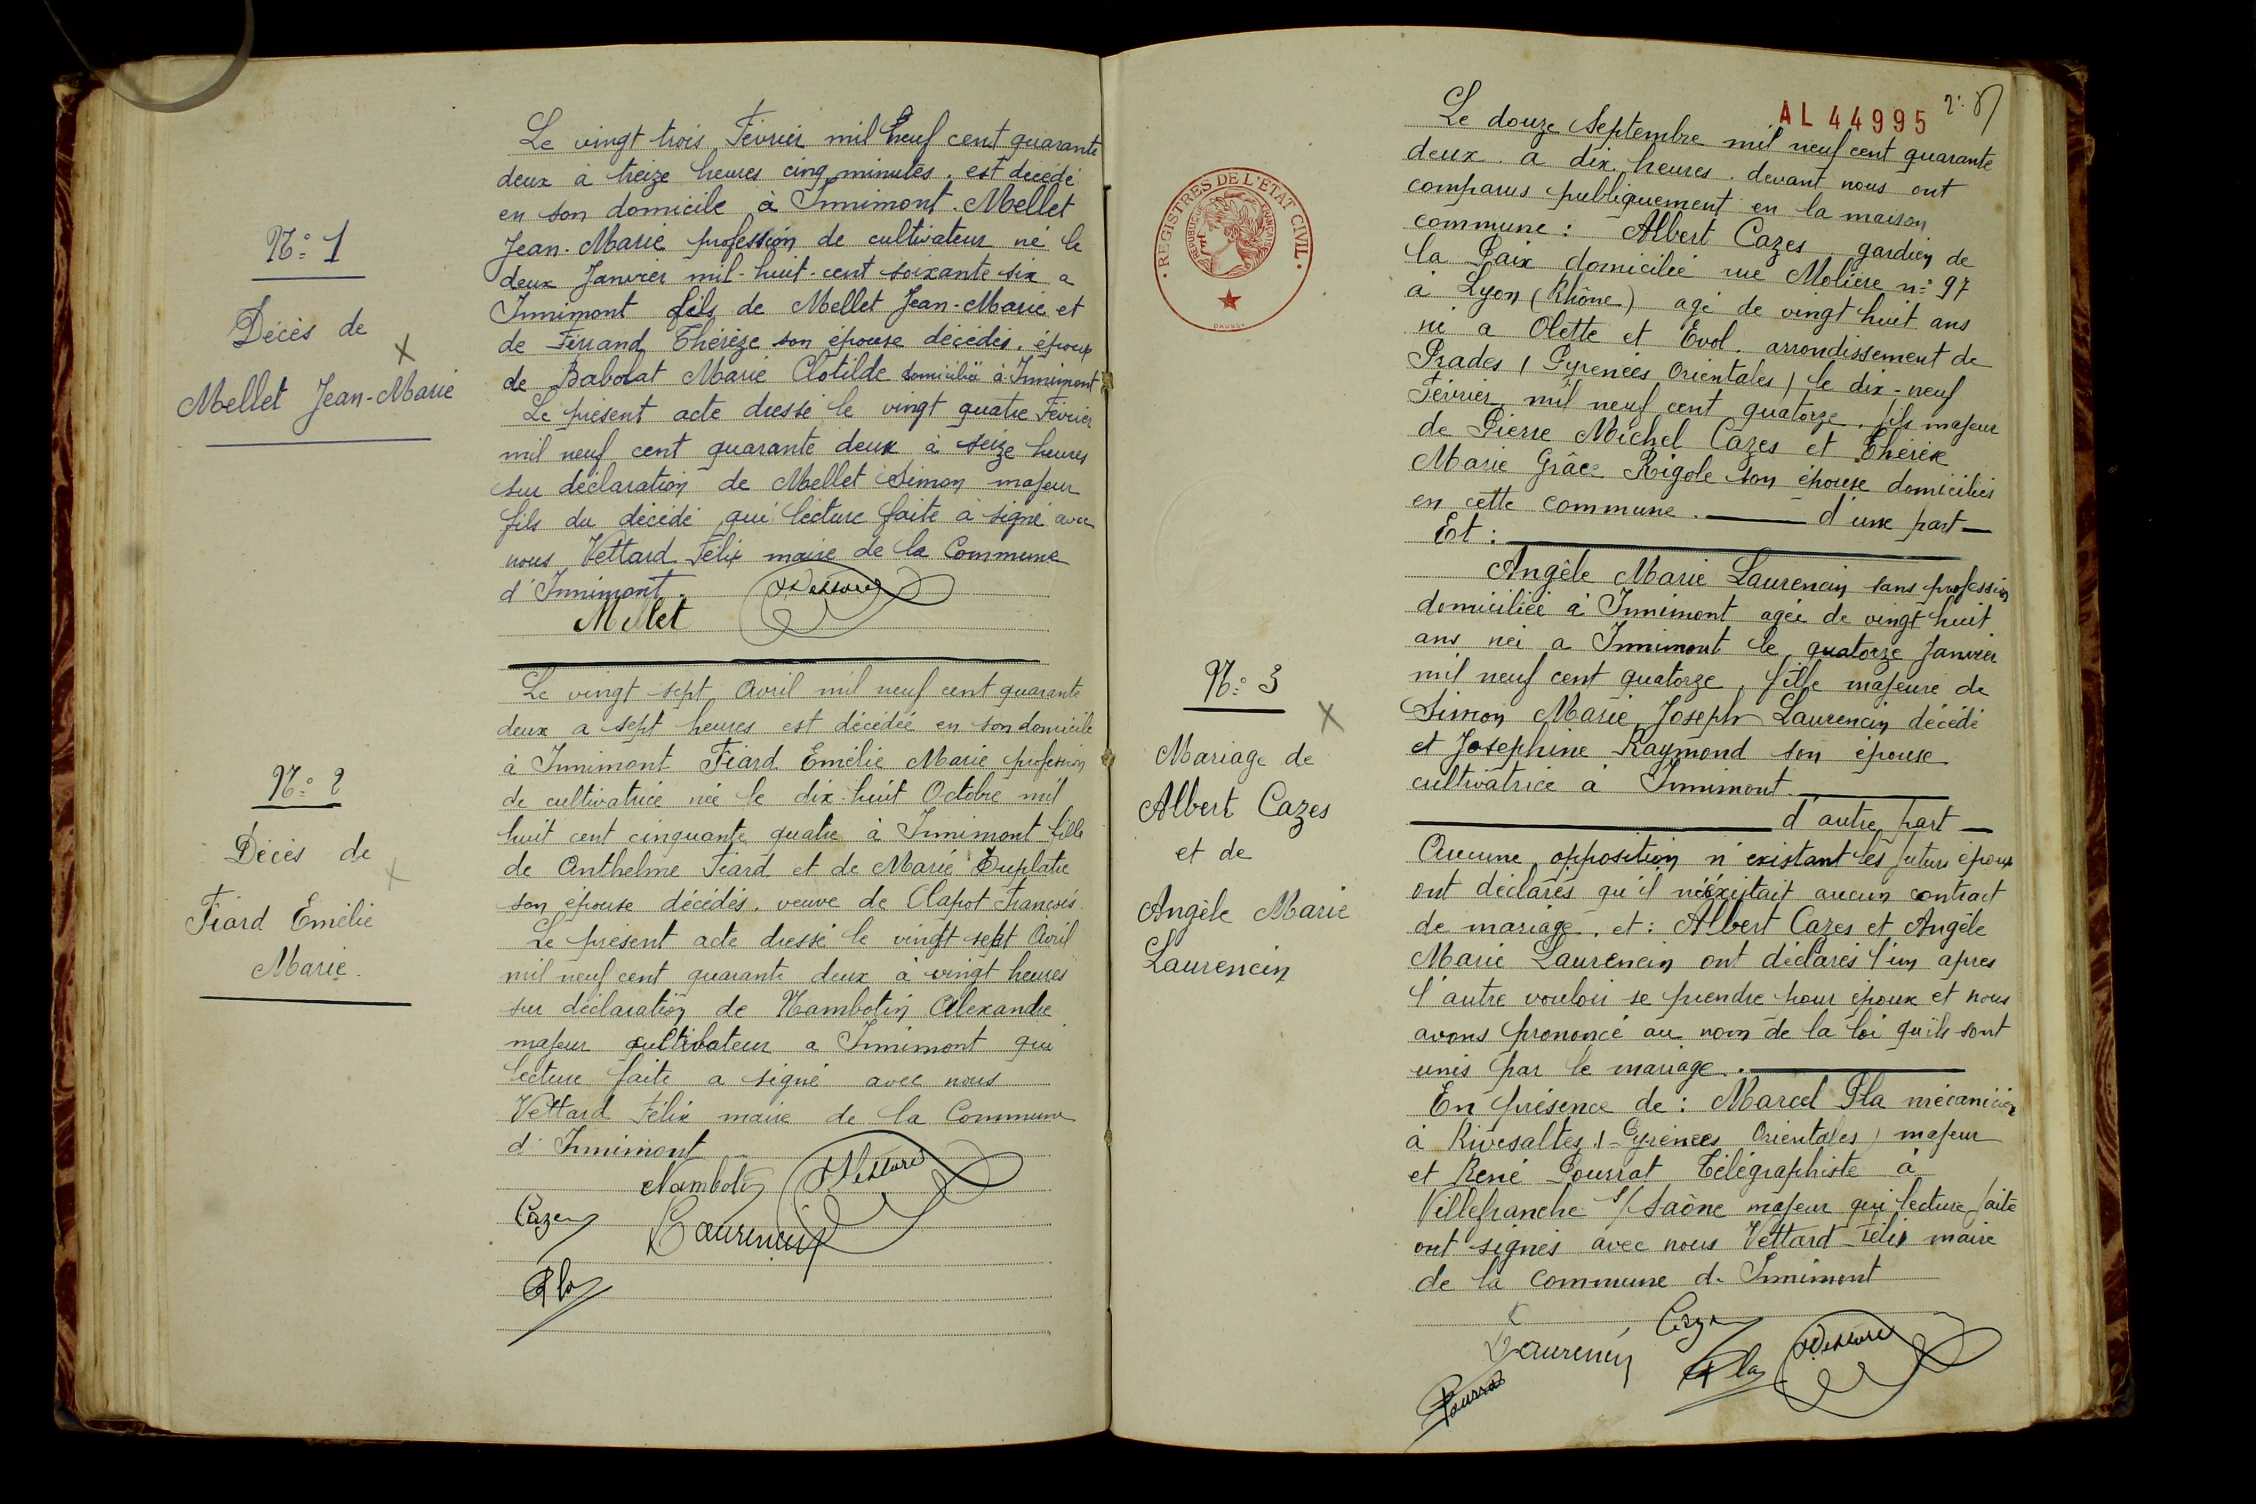 N° 1
Décès de
Mellet Jean-Marie
Le vingt trois Février mil neuf cent quarante
deux à treize heures cinq minutes, est décédé
en son domicile à Innimont. Mellet
Jean-Marie profession de cultivateur né le
deux Janvier mil-huit-cent soixante six a
Innimont fils de Mellet Jean-Marie et
de Ferrand Thérèze son épouse décédés, époux
de Babolat Marie Clotilde domiciliée à Innimont
Le présent acte dressé le vingt quatre Février
mil neuf cent quarante deux à seize heures
sur déclaration de Mellet Simon majeur
fils du décédé qui lecture faite à signé avec
nous Vettard Félix maire de la Commune
d'Innimont.
Mellet
N° 2
Décès de
Fiard Emélie
Marie.
Le vingt sept Avril mil neuf cent quarante
deux a sept heures est décédée en son domicile
à Innimont Fiard Emélie Marie profession
de cultivatrice née le dix-huit Octobre mil
huit cent cinquante quatre à Innimont fille
de Anthelme Fiard et de Marie
son épouse décédés, veuve de Clapot François.
Le présent acte dressé le vingt sept Avril
mil neuf cent quarante deux à vingt heures
sur déclaration de Nambotin Alexandre
majeur cultivateur a Innimont qui
lecture faite a signé avec nous
Vettard Félix maire de la Commune
d'Innimont
Nambotin
Cazes
Laurencin
Pla
AL 44995
REGISTRES DE L'ÉTAT CIVIL
RÉPUBLIQUE FRANÇAISE
N° 3
Mariage de
Albert Cazes
et de
Angèle Marie
Laurencin
Le douze Septembre mil neuf cent quarante
deux. a dix heures. devant nous ont
comparus publiquement en la maison
commune : Albert Cazes gardien de
la Paix domicilié rue Molière n° 97
à Lyon (Rhône) agé de vingt huit ans
né a Olette et Evol. arrondissement de
Prades (Pyrenées Orientales) le dix-neuf
Février mil neuf cent quatorze, fils majeur
de Pierre Michel Cazes et Thérèse
Marie Grâce Rigole son épouse domiciliés
en cette commune. d'une part
Et :
Angèle Marie Laurencin sans profession
domiciliée à Innimont agée de vingt huit
ans née a Innimont le quatorze Janvier
mil neuf cent quatorze, fille majeure de
Simon Marie Joseph Laurencin décédé
et Joséphine Raymond son épouse
cultivatrice à Innimont.
d'autre part
Aucune opposition n'existant les futurs époux
ont déclarés qu'il n'éxistait aucun contract
de mariage. et : Albert Cazes et Angèle
Marie Laurencin ont déclarés l'un apres
l'autre vouloir se prendre pour époux et nous
avons prononcé au nom de la loi qu'ils sont
unis par le mariage.
En présence de : Marcel Pla mécanicien
à Rivesaltes (Pyrénées Orientales) majeur
et René Pourrat Télégraphiste à
Villefranche s/Saône majeur qui lecture faite
ont signés avec nous Vettard Félix maire
de la commune d'Innimont
Cazes
Laurencin
Pla
Pourrat